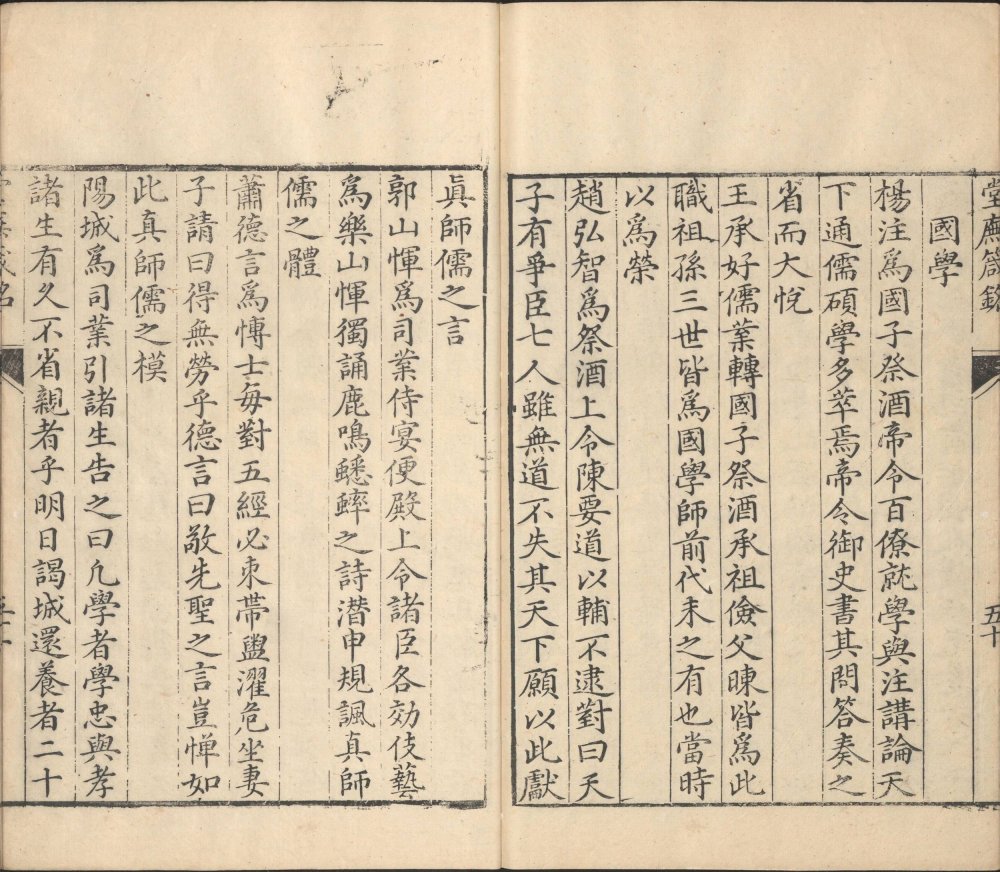 堂廡箴銘
五十
國學
楊注爲國子祭酒帝令百僚就學與注講論天
下通儒碩學多萃焉帝令御史書其問答奏之
省而大悅
王承好儒業轉國子祭酒承祖儉父暕皆爲此
職祖孫三世皆爲國學師前代未之有也當時
以爲榮
趙弘智爲祭酒上令陳要道以輔不逮對曰天
子有爭臣七人雖無道不失其天下願以此獻
眞師儒之言
郭山惲爲司業侍宴便殿上令諸臣各効伎藝
爲樂山惲獨誦鹿鳴蟋蟀之詩潜申規諷真師
儒之體
蕭德言爲愽士每對五經必束帶盥濯危坐妻
子請曰得無勞乎德言曰敬先聖之言豈惮如
此真師儒之模
陽城爲司業引諸生告之曰凡學者學忠與孝
諸生有久不省親者乎明日謁城還養者二十